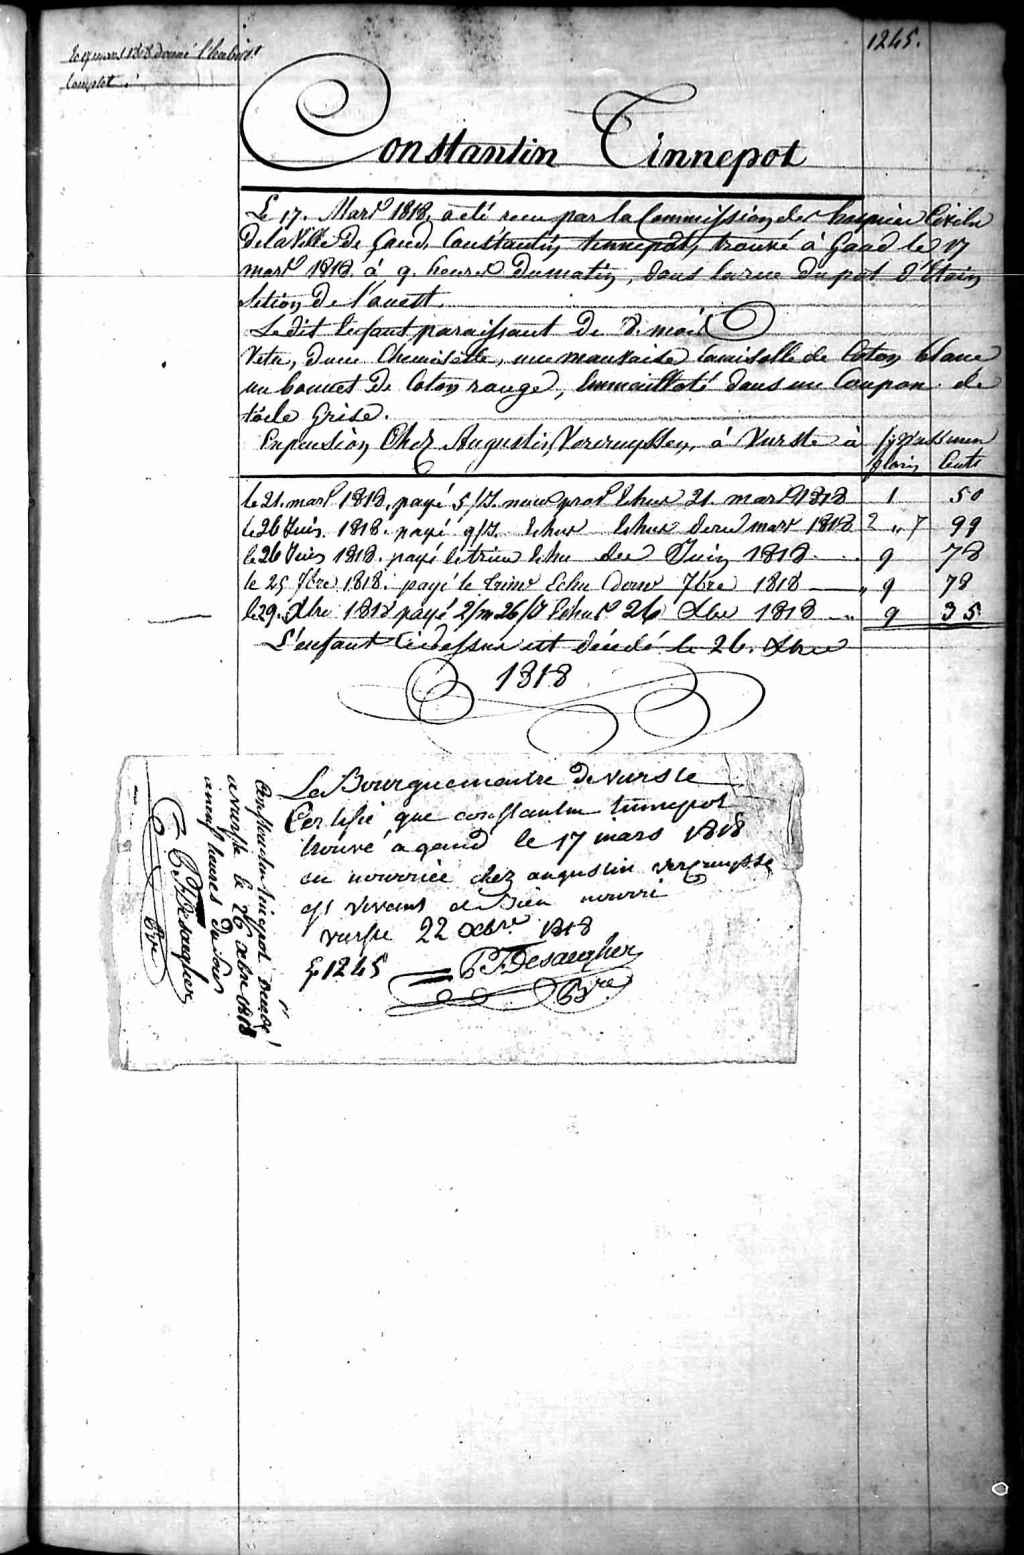 1245.
le 17 mars 1818 donné l'habit
Complet.
Constantin Tinnepot
Le 17. Mars 1818, a été reçu par la Commission des hospices Civils
De la Ville De Gand, Constantin tinnepot, trouvé à Gand le 17
mars 1818. à 9. heures Du matin, Dans la rue du pot D'Etain
Section De l'ouest.
Le dit Enfant paraissant De 8 mois
Vetu, d'une Chemisette, une mauvaise Camisolle de Coton blanc
un bonnet De Coton rouge, Emmailloté Dans un Coupon de
toile Grise.
En pension Chez Augustin Vercruyssen, à Vurste à
florin Cents
le 21. mars 1818. payé 5/J. nour prov Echus 21. mars 1818 1 50
le 26 Juin 1818. payé 9/J. Echus dern mars 1818 2 " 7 99
le 26 Juin 1818. payé le trim Echu de Juin 1818. 9 78
le 25 7bre 1818. payé le trim Echu Dern 7bre 1818 " 9 78
le 29. Xbre 1818 payé 2/m 26/J Echus 26 Xbre 1818 " 9 35
L'enfant Cidessus est décédé le 26. Xbre
1818
Le Bourguemaitre De vurste
Certifie que constantin tinnepot
trouvé a gand le 17 mars 1818
en nourrice chez augustin vercruysse
est vivant et bien nourri
vurste 22 xbre 1818
1245 P. J. Desaegher
Bre
Constantin tinnepot
a vurste le 26 xbre 1818
a neuf heures du soir
P. J. Desaegher
Bre